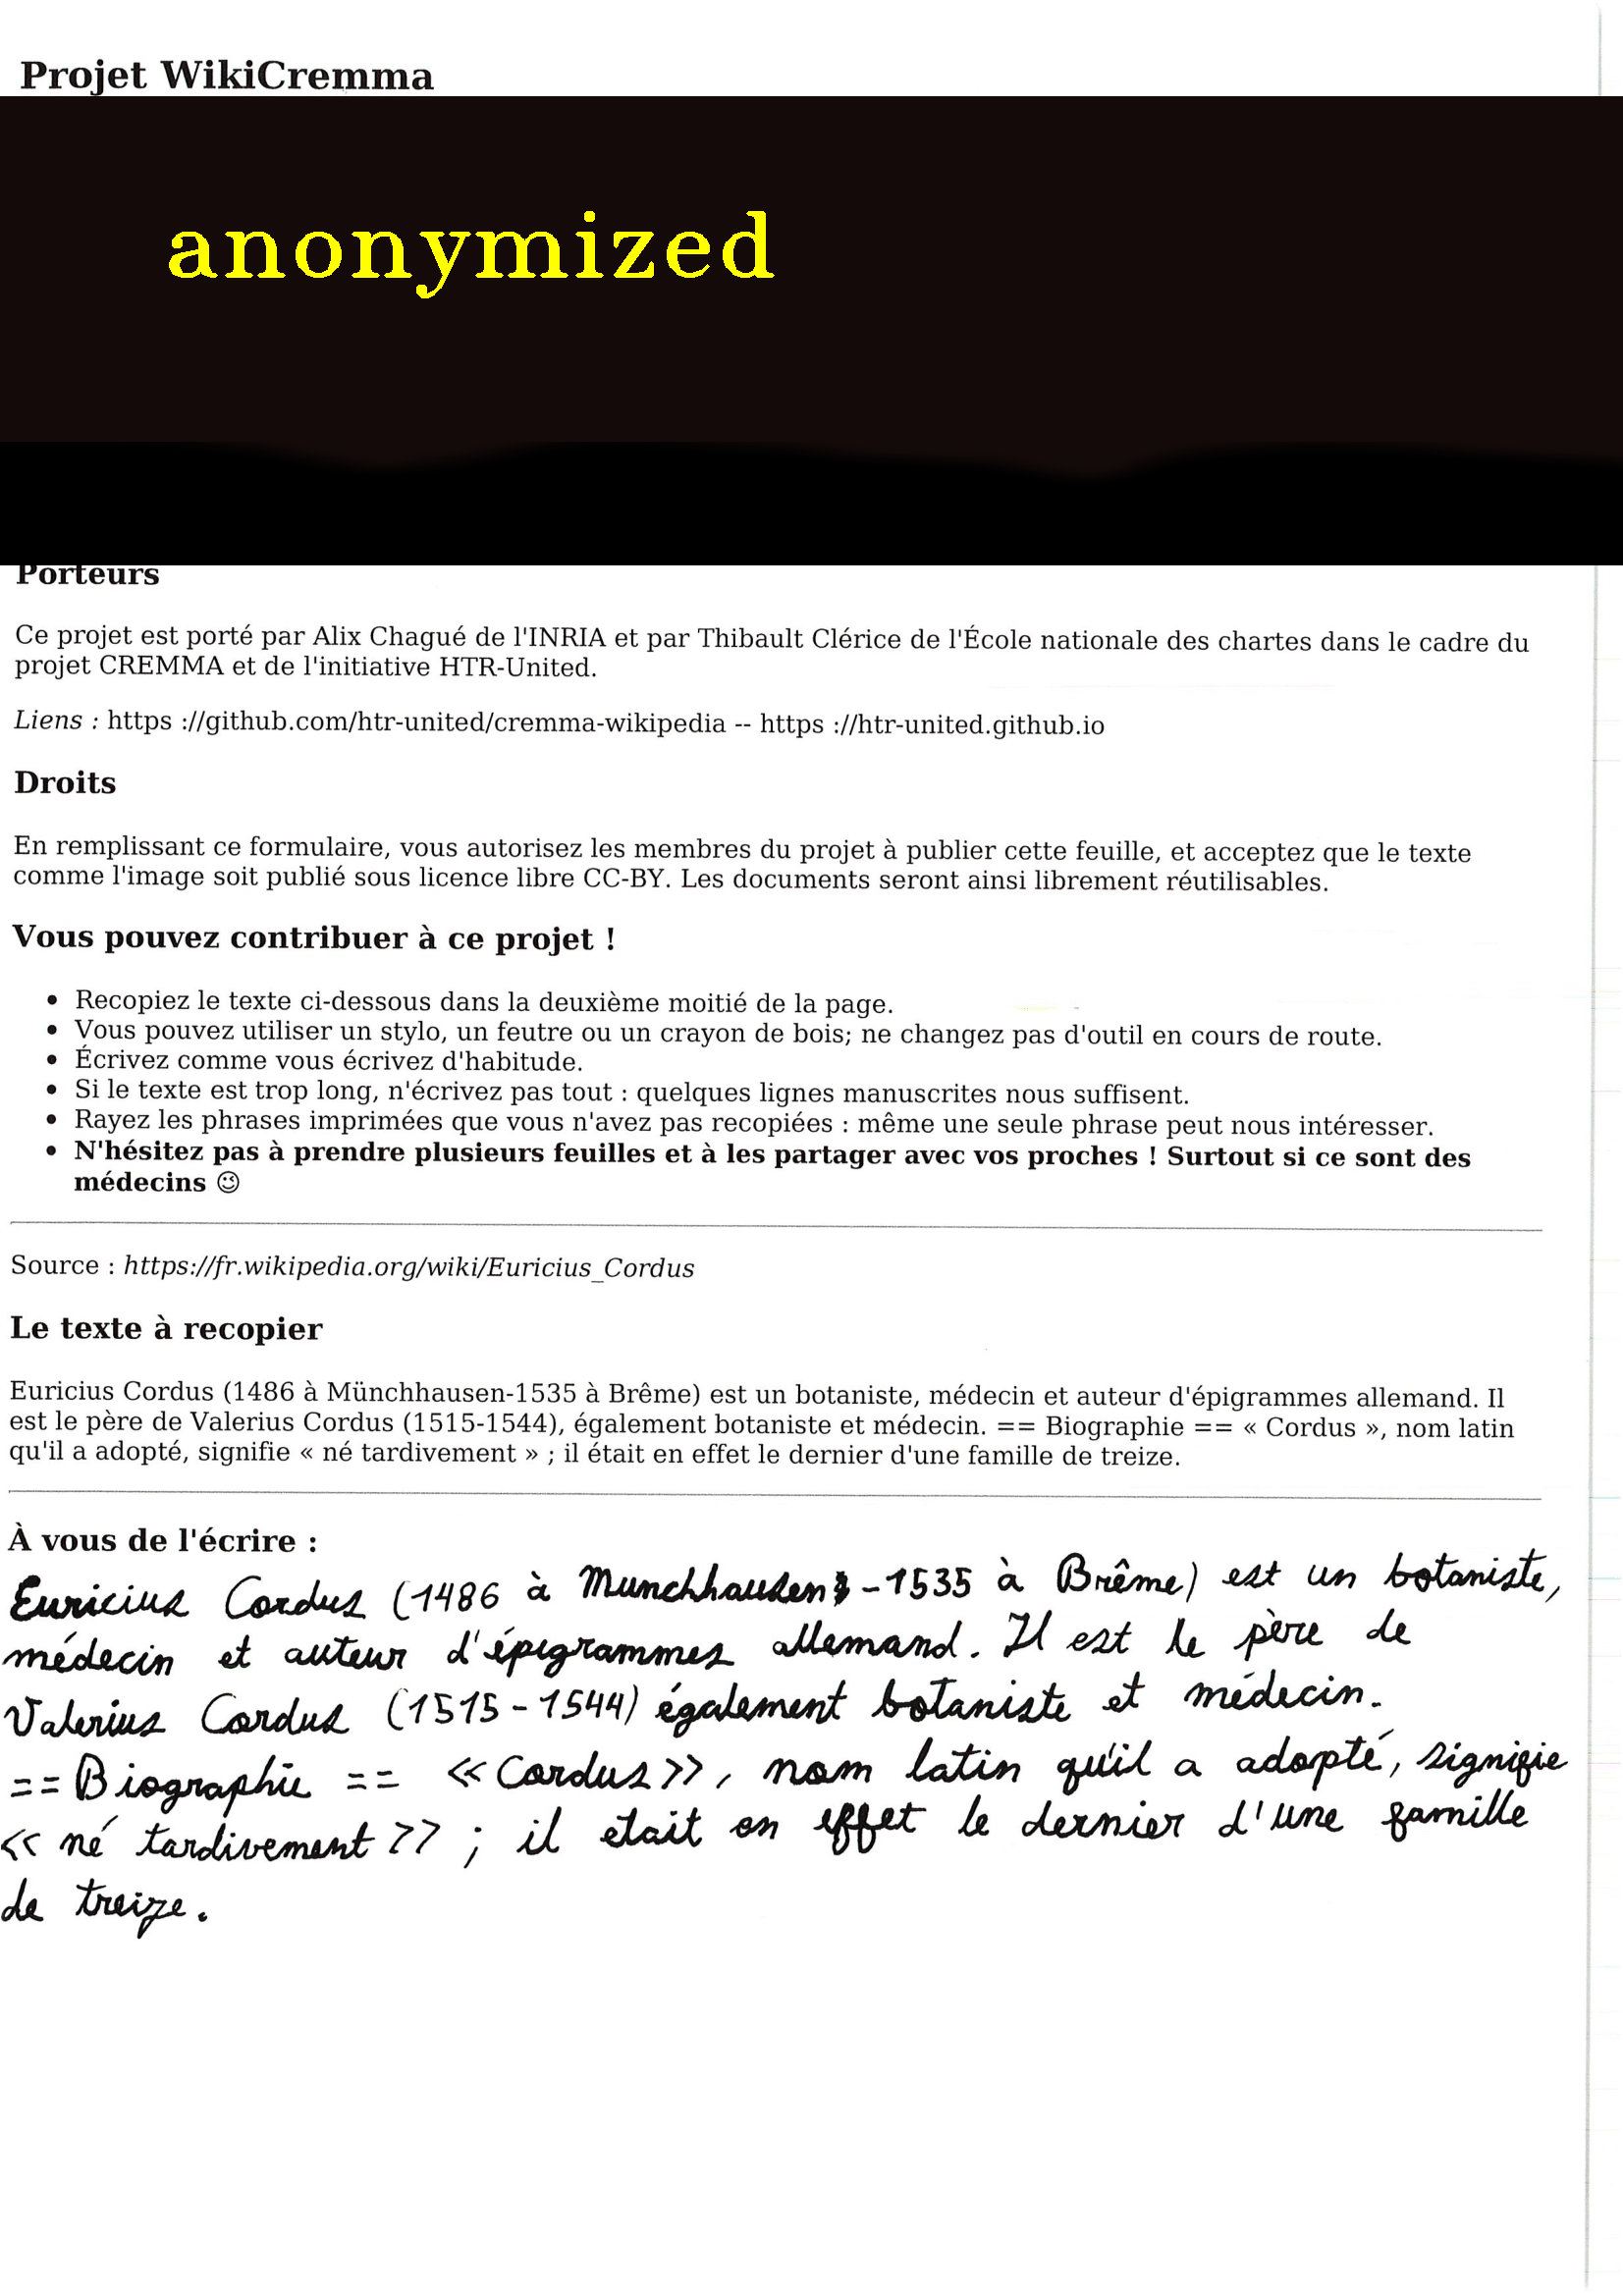 Projet WikiCremma
anonymized
Porteurs
Ce projet est porté par Alix Chagué de l'INRIA et par Thibault Clérice de l'École nationale des chartes dans le cadre du
projet CREMMA et de l'initiative HTR-United.
Liens : https ://github.com/htr-united/cremma-wikipedia -- https ://htr-united.github.io
Droits
En remplissant ce formulaire, vous autorisez les membres du projet à publier cette feuille, et acceptez que le texte
comme l'image soit publié sous licence libre CC-BY. Les documents seront ainsi librement réutilisables.
Vous pouvez contribuer à ce projet !
• Recopiez le texte ci-dessous dans la deuxième moitié de la page.
• Vous pouvez utiliser un stylo, un feutre ou un crayon de bois; ne changez pas d'outil en cours de route.
• Écrivez comme vous écrivez d'habitude.
• Si le texte est trop long, n'écrivez pas tout : quelques lignes manuscrites nous suffisent.
• Rayez les phrases imprimées que vous n'avez pas recopiées : même une seule phrase peut nous intéresser.
• N'hésitez pas à prendre plusieurs feuilles et à les partager avec vos proches ! Surtout si ce sont des
médecins 😉
Source : https://fr.wikipedia.org/wiki/Euricius_Cordus
Le texte à recopier
Euricius Cordus (1486 à Münchhausen-1535 à Brême) est un botaniste, médecin et auteur d'épigrammes allemand. Il
est le père de Valerius Cordus (1515-1544), également botaniste et médecin. == Biographie == « Cordus », nom latin
qu'il a adopté, signifie « né tardivement » ; il était en effet le dernier d'une famille de treize.
À vous de l'écrire :
Euricius Cordus (1486 à Munchhausen -1535 à Brême) est un botaniste,
médecin et auteur d'épigrammes allemand. Il est le père de
Valerius Cordus (1515-1544) également botaniste et médecin.
== Biographie == << Cordus >>, nom latin qu'il a adopté, signifie
<< né tardivement >> ; il etait en effet le dernier d'une famille
de treize.